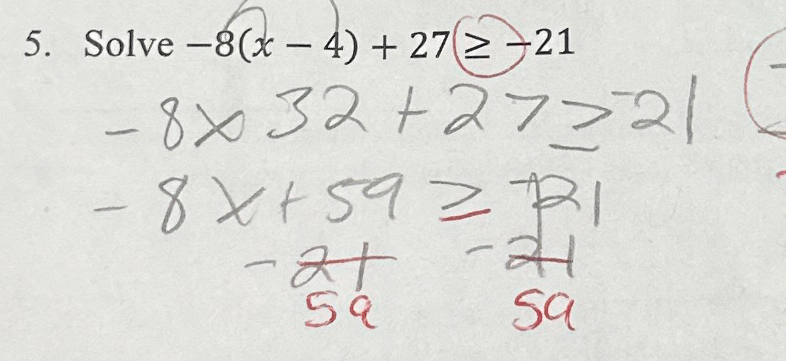 5. Solve −8(x − 4) + 27 ≥ −21
-8x 32 + 27 ≥ -21
-8x + 59 ≥ -21
-21 -21
59 59